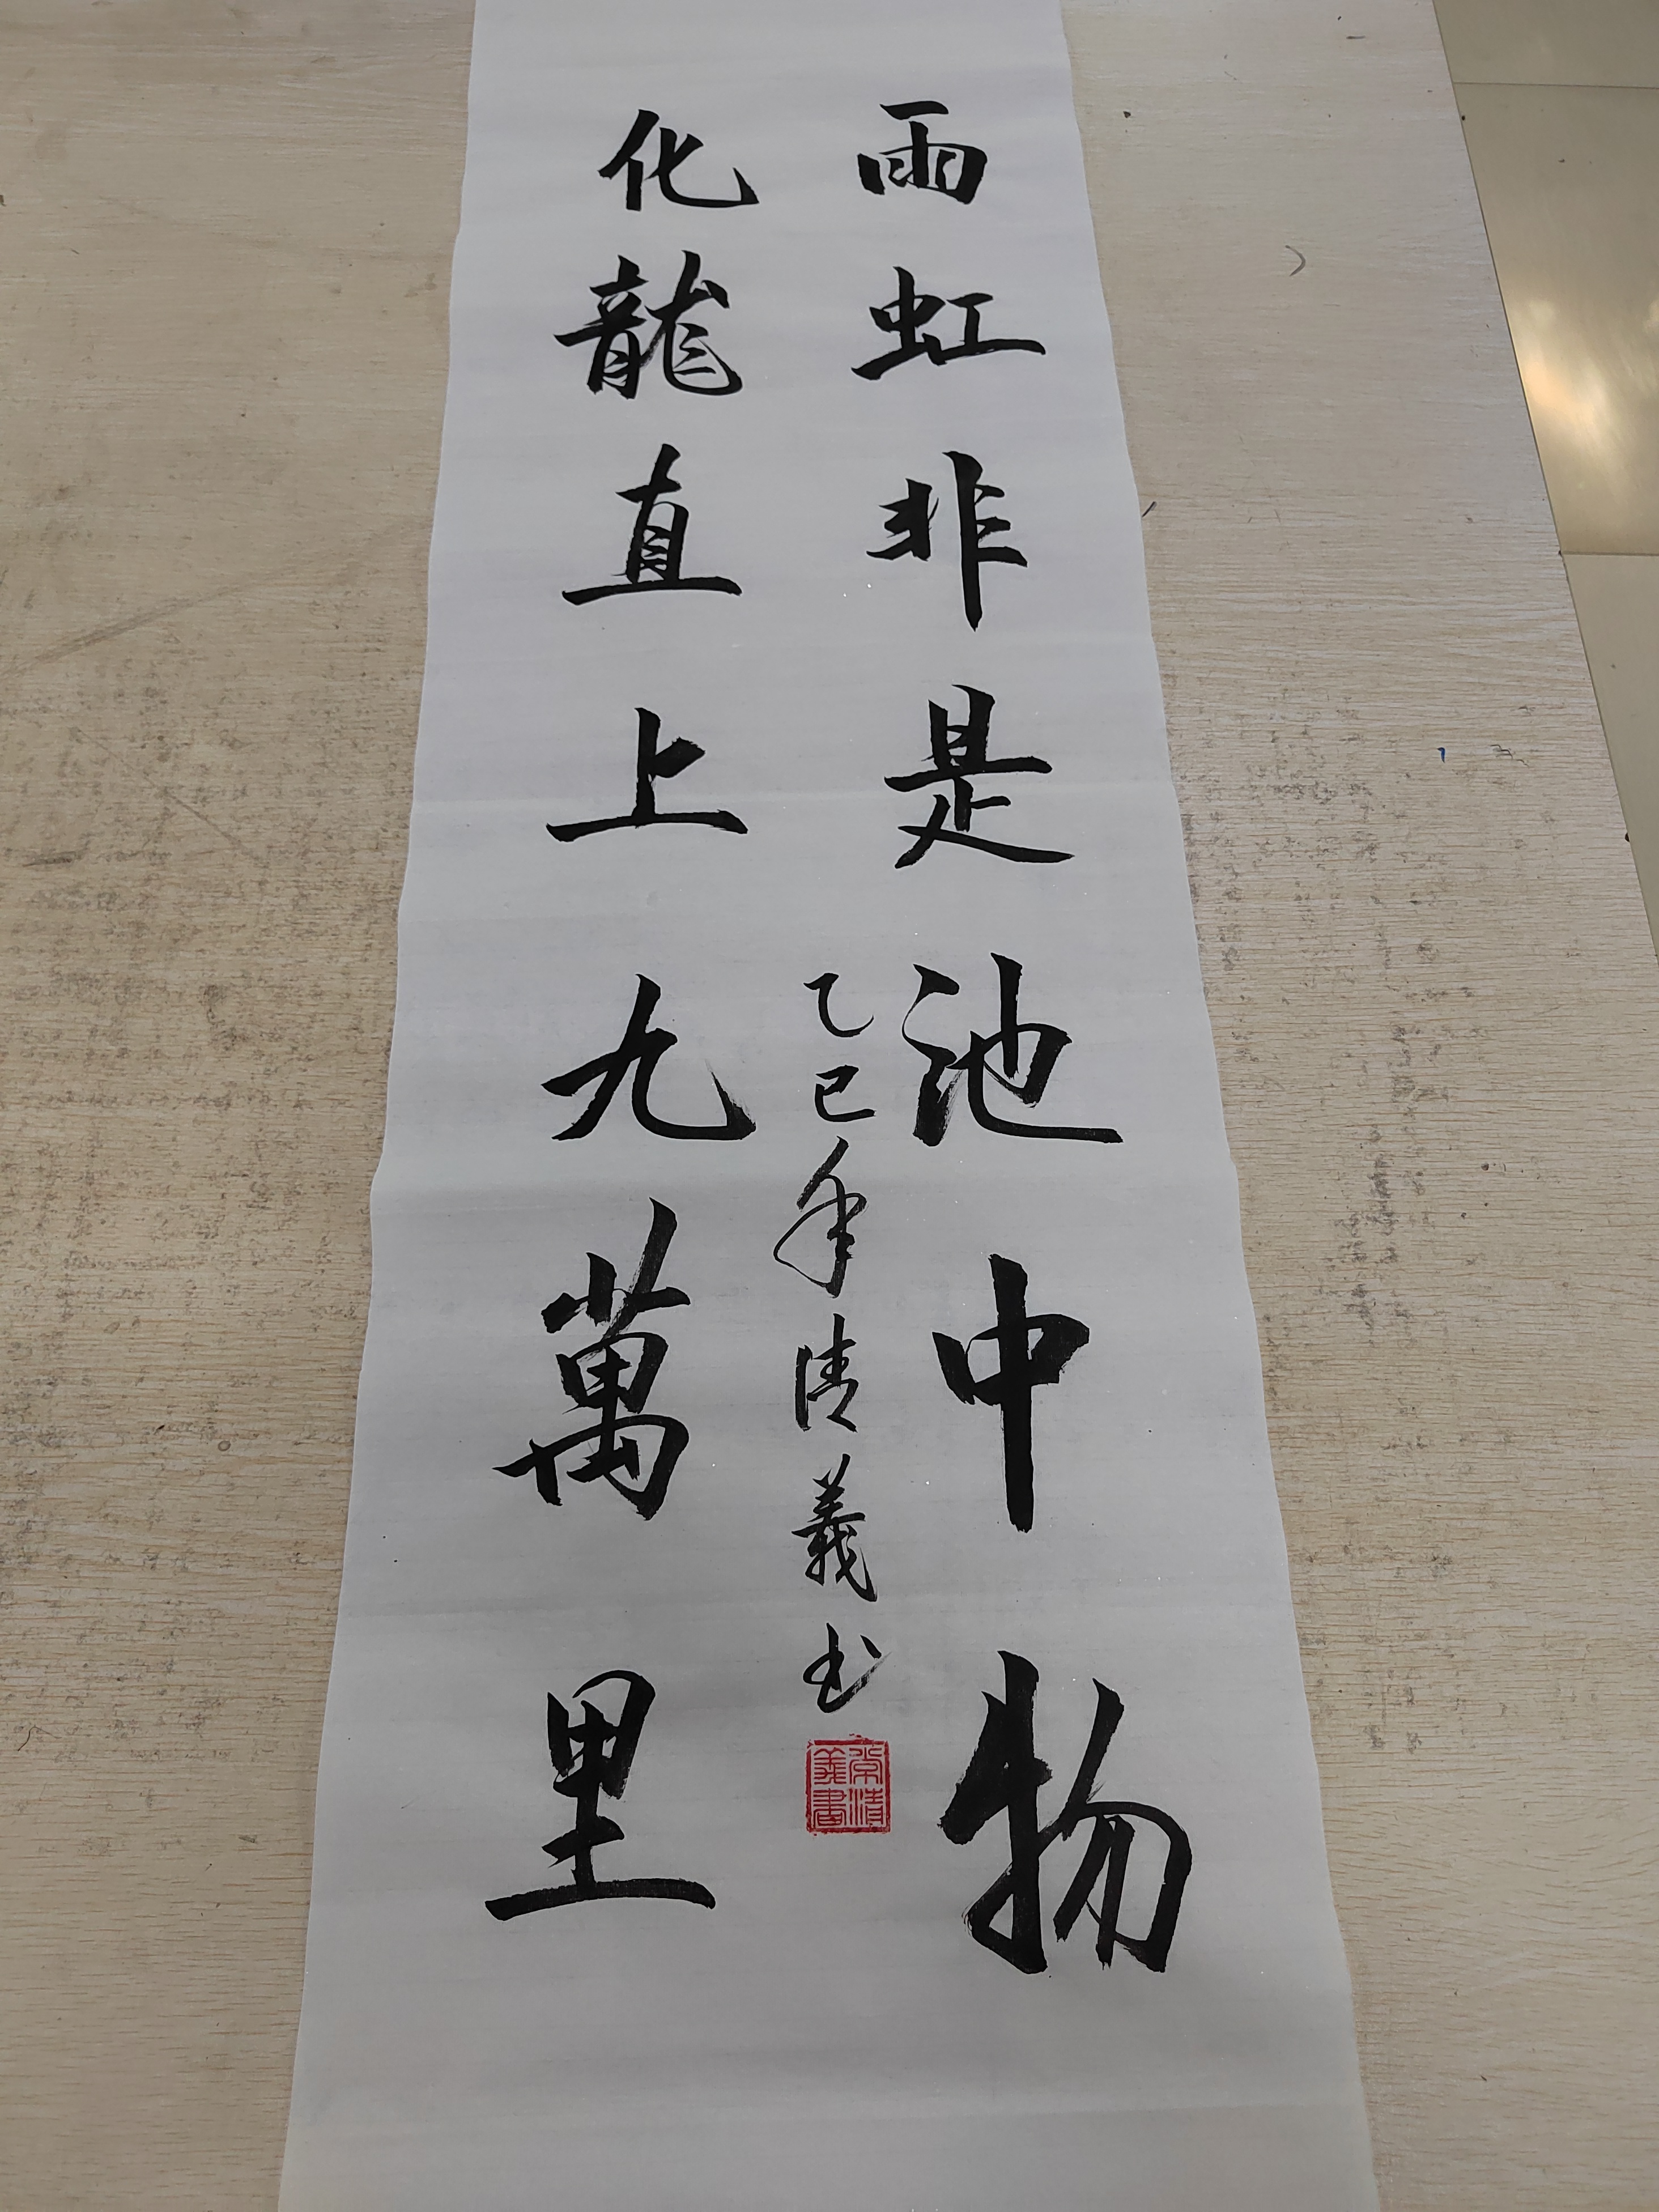 雨虹非是池中物
化龍直上九萬里
乙巳年清義书
常清
義書